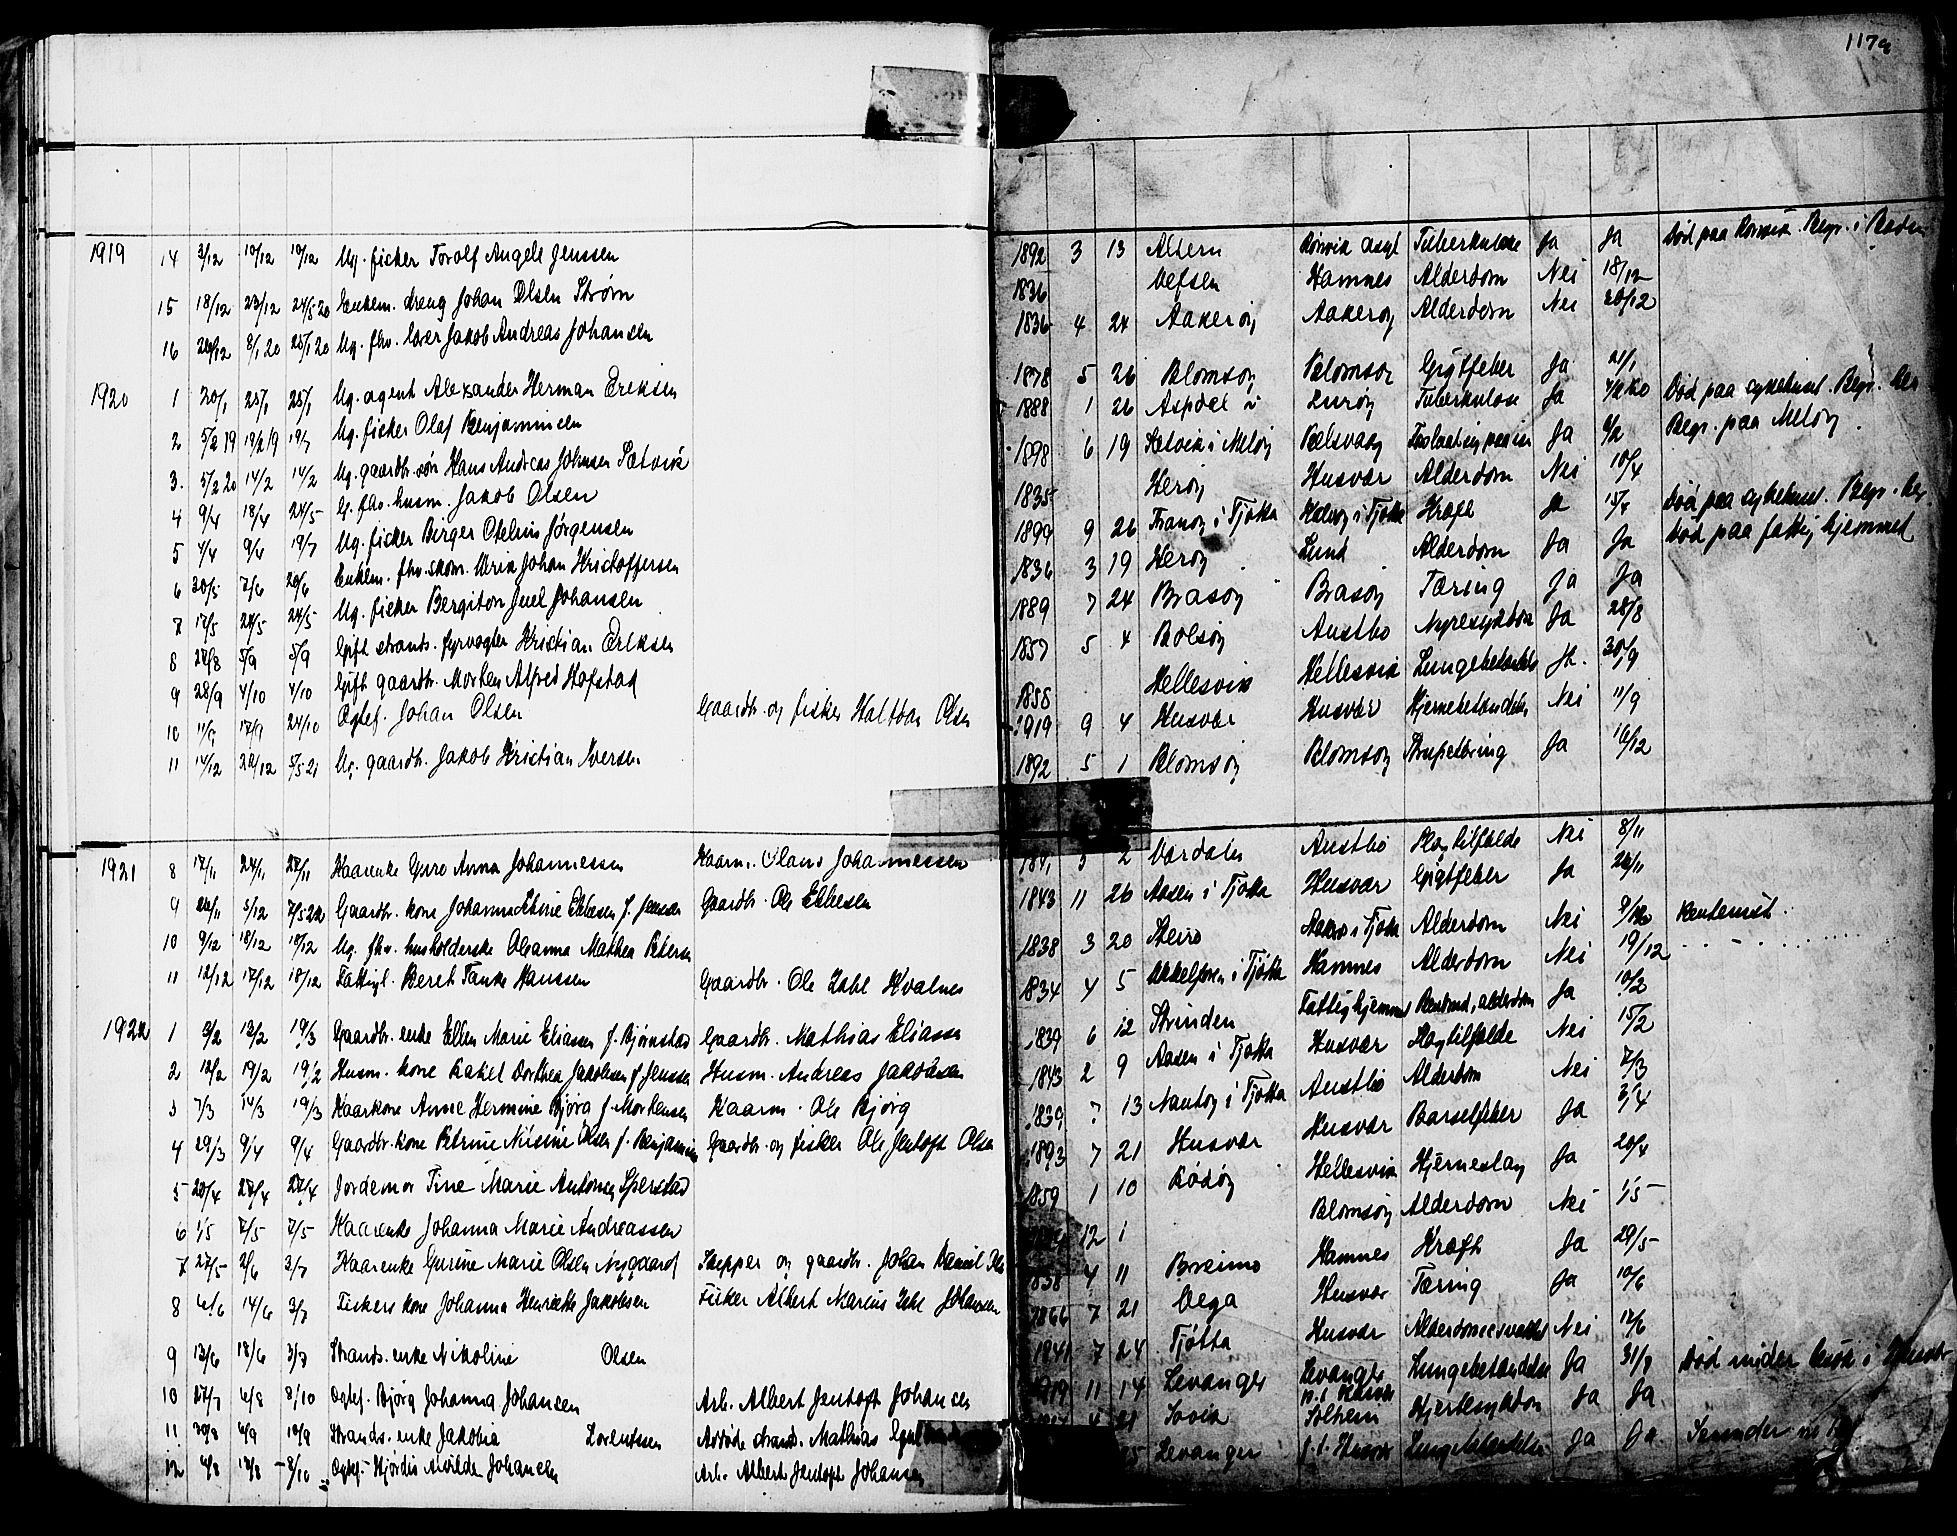 117a
1919 14 3/12 10/12 10/12 Ug. fisker Torolf Angell Jenssen 1892 3 13 Altern Rønvik asyl Tuberkulose Ja Ja Død paa Rønvik. Begr. i Bodin
15 18/12 23/12 24/5 20 Enkem. dreng Johan Olsen Strøm 1836 Vefsen Hamnes Alderdom Nei 18/12
16 26/12 8/1 20 25/1 20 Ug. fhv. lærer Jakob Andreas Johansen 1836 4 24 Aakerøy Aakerøy Alderdom Nei 28/12
1920 1 20/1 25/1 25/1 Ug. agent Alexander Herman Eriksen 1878 5 26 Blomsøy Blomsøy Gigtfeber Ja 21/1
2 5/2 19 19/2 19 19/7 Ug. fisker Olaf Benjaminsen 1888 1 26 Aspdal i Lurøy Tuberkulose Ja 4/2 20 Død paa sykehus. Begr. her
3. 5/2 20 14/2 14/2 Ug. gaardbr. søn Hans Andreas Johnsen Sætvik 1898 6 19 Sætvik i Meløy Ja 6/2 Begr. paa Meløy
4 9/4 18/4 24/5 G. fhv. husm. Jakob Olsen 1835 Herøy Husvær Alderdom Nei 10/4
5 4/4 9/6 19/7 Ug. fisker Birger Otelius Jørgensen 1899 9 26 Tranøy i Tjøtta i Tjøtta Kræft Ja 15/4 Død paa sykehus. Begr. her
6 30/5 7/6 20/6 Enkem. fhv. skom. Ulrik Johan Kristoffersen 1836 3 19 Herøy Lund Alderdom Ja Ja Død paa fattighjemmet
7 17/5 24/5 24/5 Ug. fisker Bergiton Juel Johansen 1889 7 24 Brasøy Brasøy Tæring Ja Ja
8 28/8 5/9 5/9 Gift strands. fyrvogter Kristian Eriksen 1857 5 4 Bolsøy Austbø Nyresykdom Ja 28/8
9 28/9 4/10 4/10 Gift gaardbr. Morten Alfred Hofstad 1858 Hellesvik Hellesvik Lungebetændelse Ja. 30/9
10 11/9 17/9 24/10 Egtef. Johan Olsen Gaardbr. og fisker Haltbar Olsen 1919 9 4 Husvær Husvær Hjernebetændelse Nei 11/9
11 14/12 22/12 5/5 21 Ug. gaardbr. Jakob Kristian Iversen 1892 5 1 Blomsøy Blomsøy Strupetæring Ja 16/12
1921 8 17/11 24/11 27/11 Kaarenke Guro Anna Johannessen Kaarm. Olaus Johannessen 2 Værdalen Austbø Slagtilfælde Nei 8/11
9 26/11 5/12 7/5 22 Gaardbr. kone Johanna Ebbesen f. Jensen Gaardbr. Ole Ebbesen 1843 11 26 Aasen i Tjøtta Husvær Gigtfeber Ja 26/11
10 9/12 18/12 18/12 Ug. fhv. husholderske Oleanna Mathea Petersen 1838 3 20 Steiro i Tjøtta Alderdom Nei 9/12 Rentenist.
11 12/12 17/12 18/12 Fattigl. Beret Tanke Hanssen Gaardbr. Ole Zahl Kvalnes 1834 4 5 i Tjøtta Hamnes Alderdom Nei 19/12
1922 1 3/2 13/2 19/3 Gaardbr. enke Ellen Marie Eliassen f. Bjørnstad Gaardbr. Mathias Eliassen 1839 6 12 Strinden Fattighjemmet alderdom Ja 10/2
2 12/2 19/2 19/2 Husm. kone Rakel Dorthea Jakobsen f. Jenssen Husm. Andreas Jakobsen 1843 2 9 Aasen i Tjøtta Husvær Slagtilfælde Nei 15/2
3 7/3 14/3 19/3 Kaarkone Anne Hermine Bjørg f. Mortensen Kaarm. Ole Bjørg 1839 7 13 i Tjøtta Austbø Alderdom Nei 7/3
4 29/3 9/4 9/4 Gaardbr. kone Petrine Nisine Olsen f. Benjaminsen Gaardbr. og fisker Ole Jentoft Olsen 1893 7 21 Husvær Husvær Barselfeber Ja 3/4
5 20/4 27/4 27/4 Jordemor Tine Marie Antonie Sperstad 1859 1 10 Rødøy Hellesvik Hjerneslag Ja 20/4
6 1/5 7/5 7/5 Kaarenke Johanna Marie Andreassen 12 1 Blomsøy Alderdom Nei 1/5
7 27/5 2/6 3/7 Kaarenke Gurine Marie Olsen Nygaard Skipper og gaardbr. Johan Daniel 1838 4 11 Breimo Hamnes Kræft Ja 29/5
8 6/6 14/6 3/7 Fiskers kone Johanna Henriette Jakobsen Fisker Albert Marius Zahl Johansen 1866 7 21 Vega Husvær Tæring Ja 10/6
9 13/6 18/6 3/7 Strands. enke Nikoline Olsen 1841 7 24 Tjøtta Husvær Alderdomssvakhet Nei 17/6
10 27/7 6/8 8/10 Egtef. Bjørg Johanna Johansen Arb. Albert Jentoft Johansen 1919 11 14 Levanger Levanger p.t. Husvær Lungebetændelse Ja 31/7 Død under besøk i Husvær
11 30/8 6/9 10/9 Strands. enke Jakobia Lorentsen strands. Mathias 4 21 Sovik Solheim Hjertesykdom Ja Ja
12 4/8 13/8 8/10 Egtef. Hjørdis Alvilde Johansen Arb. Albert Jentoft Johansen Levanger p.t. Husvær Lungebetændelse Ja Ja